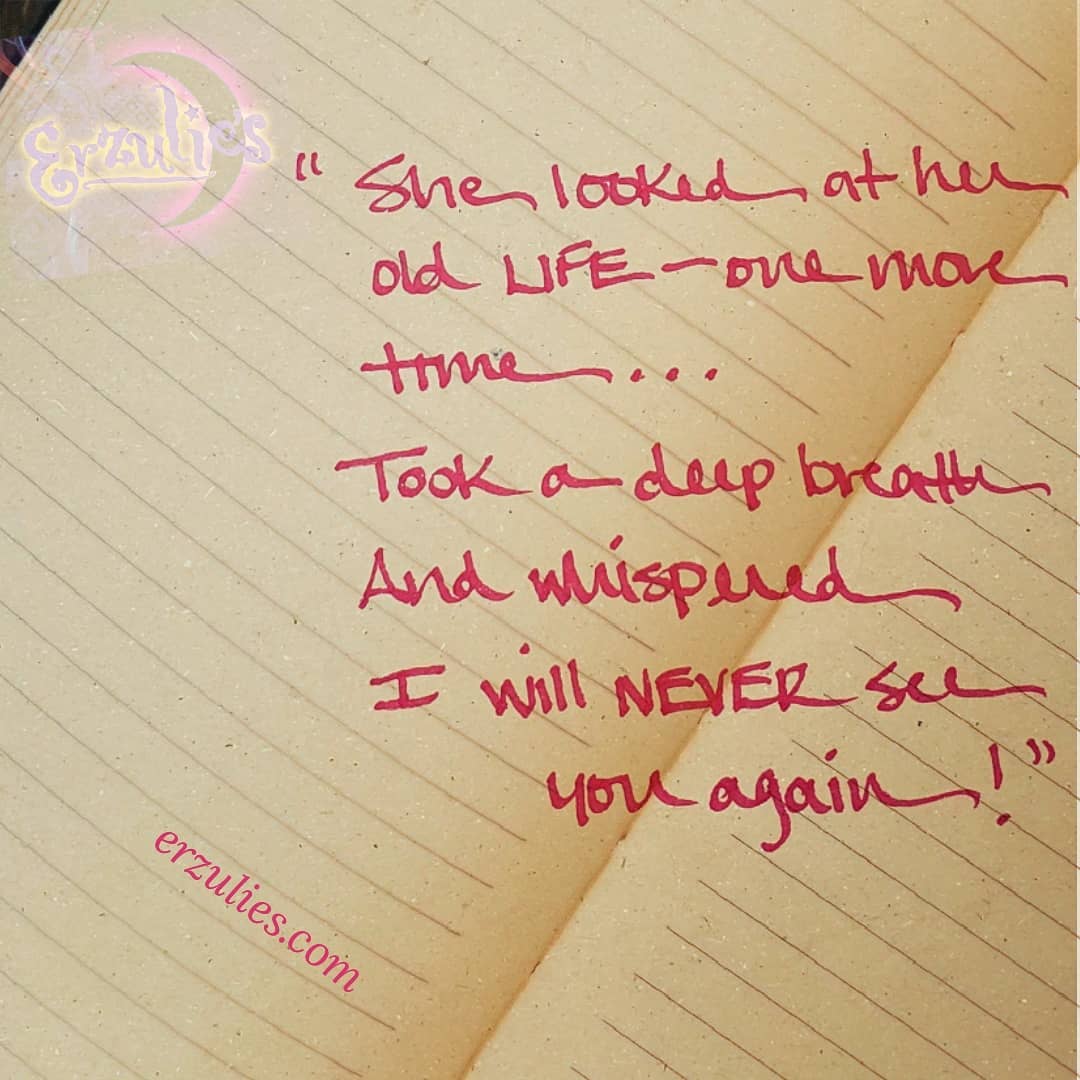 Erzulie's
" She looked at her
old LIFE - one more
time...
Took a deep breath
And whispered
I will NEVER see
you again!"
erzulies.com